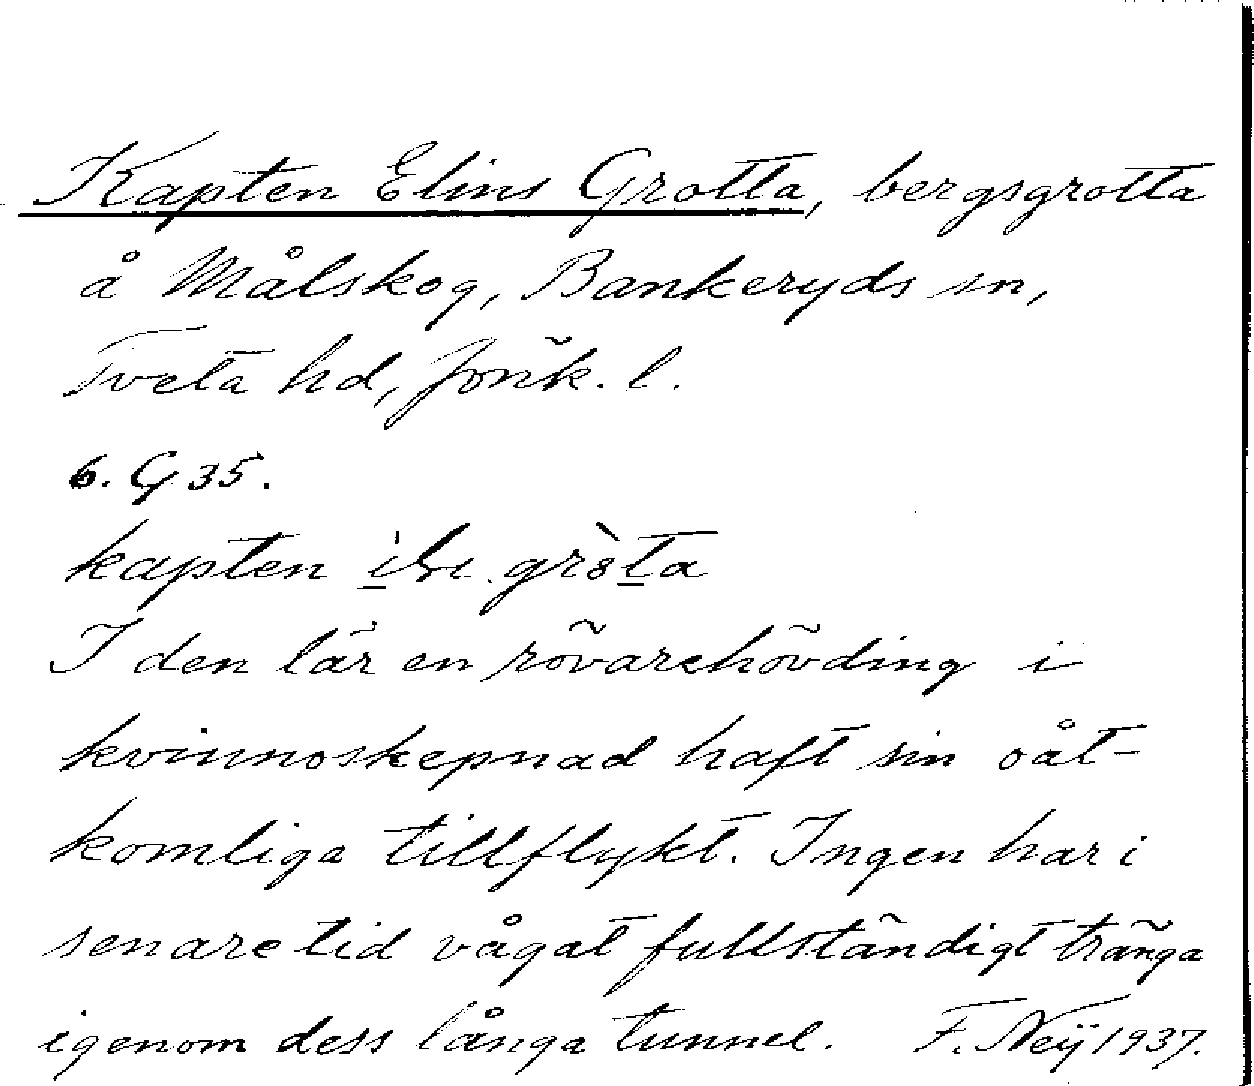 Kapten Elins Grotta, bergsgrotta
å Målskog, Bankeryds sn,
Tveta hd, Jönk. l.
6. G 35.
kapten gròta
I den lär en rövarehövding i
kvinnoskepnad haft sin oåt-
komliga tillflykt. Ingen har i
senare tid vågat fullständigt tränga
igenom dess långa tunnel. F. Neij 1937.